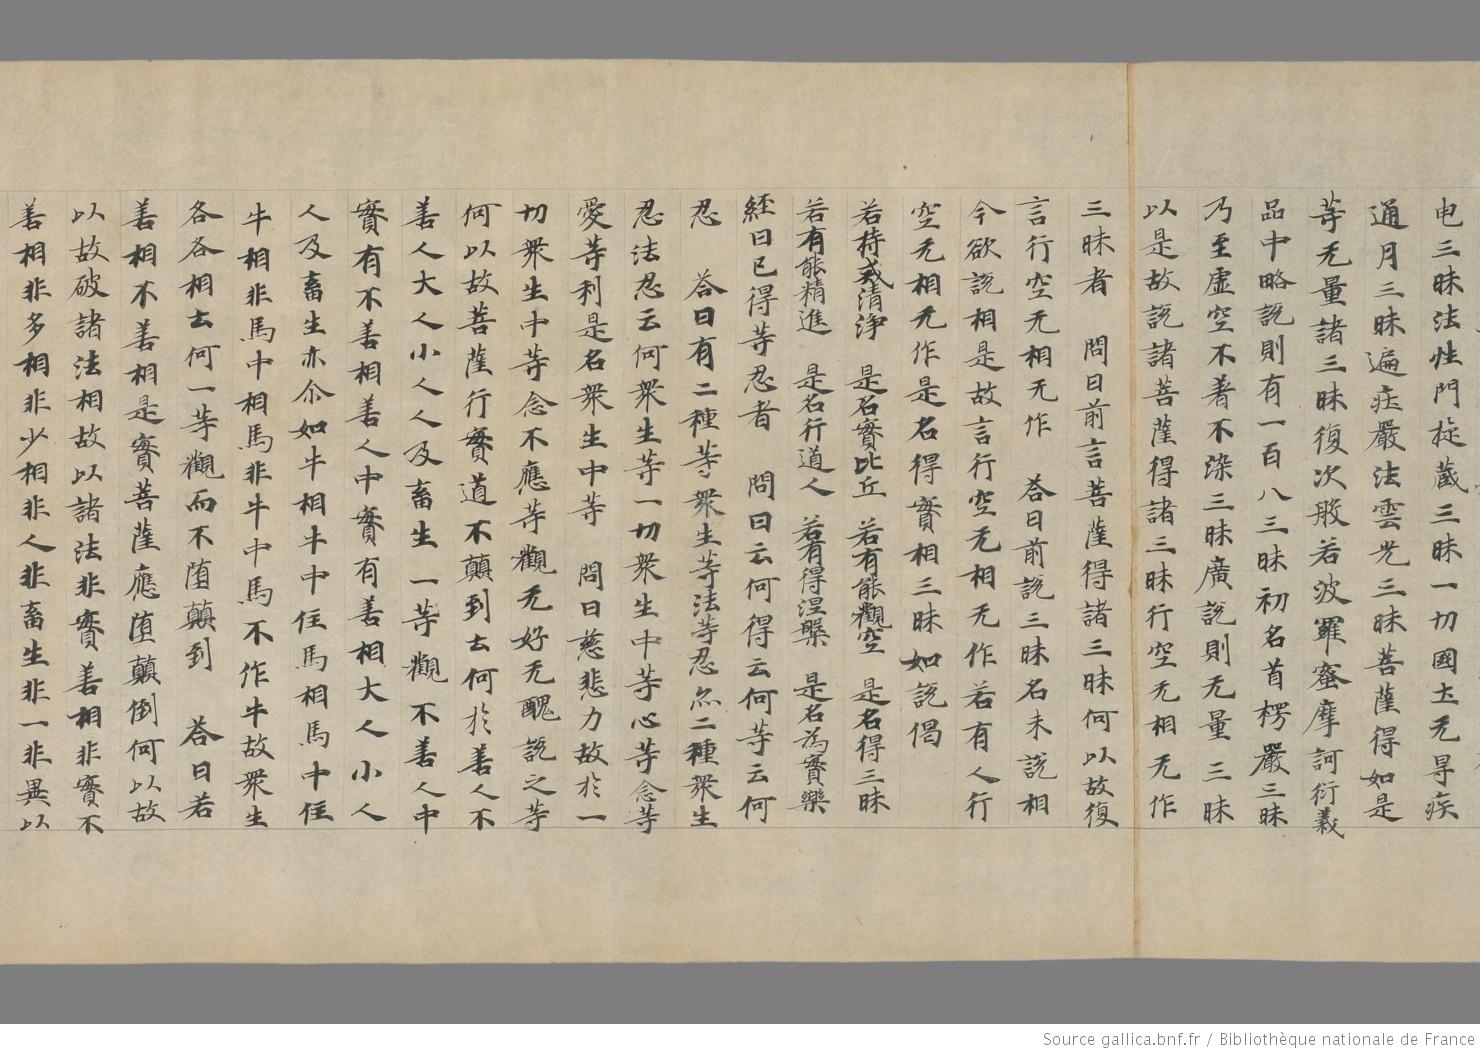 电三昧法性門旋蔵三昧一切國土无㝵疾
通月三昧遍疰嚴法雲光三昧菩薩得如是
䓁无量諸三昧復次般若波羅蜜摩訶衍義
品中略説則有一百八三昧初名首楞嚴三昧
乃至虛空不著不染三昧廣説則无量三昧
以是故説諸菩薩得諸三昧行空无相无作
三昧者　問曰前言菩薩得諸三昧何以故復
言行空无相无作　荅曰前説三昧名未説相
今欲説相是故言行空无相无作若有人行
空无相无作是名得實相三昧如説偈
若持戒清淨　是名實比丘　若有能觀空　是名得三昧
若有能精進　是名行道人　若有得涅槃　是名為實樂
經曰已得等忍者　問曰云何得云何等云何
忍　荅曰有二種等衆生等法等忍亦二種衆生
忍法忍云何衆生等一切衆生中等心等念等
愛等利是名衆生中等　問曰慈悲力故於一
切衆生中等念不應等觀无好无醜説之等
何以故菩薩行實道不顛到云何於善人不
善人大人小人人及畜生一等觀不善人中
實有不善相善人中實有善相大人小人
人及畜生亦尒如牛相牛中住馬相馬中住
牛相非馬中相馬非牛中馬不作牛故衆生
各各相云何一等觀而不堕顛到　荅曰若
善相不善相是實菩薩應堕顛倒何以故
以故破諸法相故以諸法非實善相非實不
善相非多相非少相非人非畜生非一非異以
Source gallica.bnf.fr / Bibliothèque nationale de France